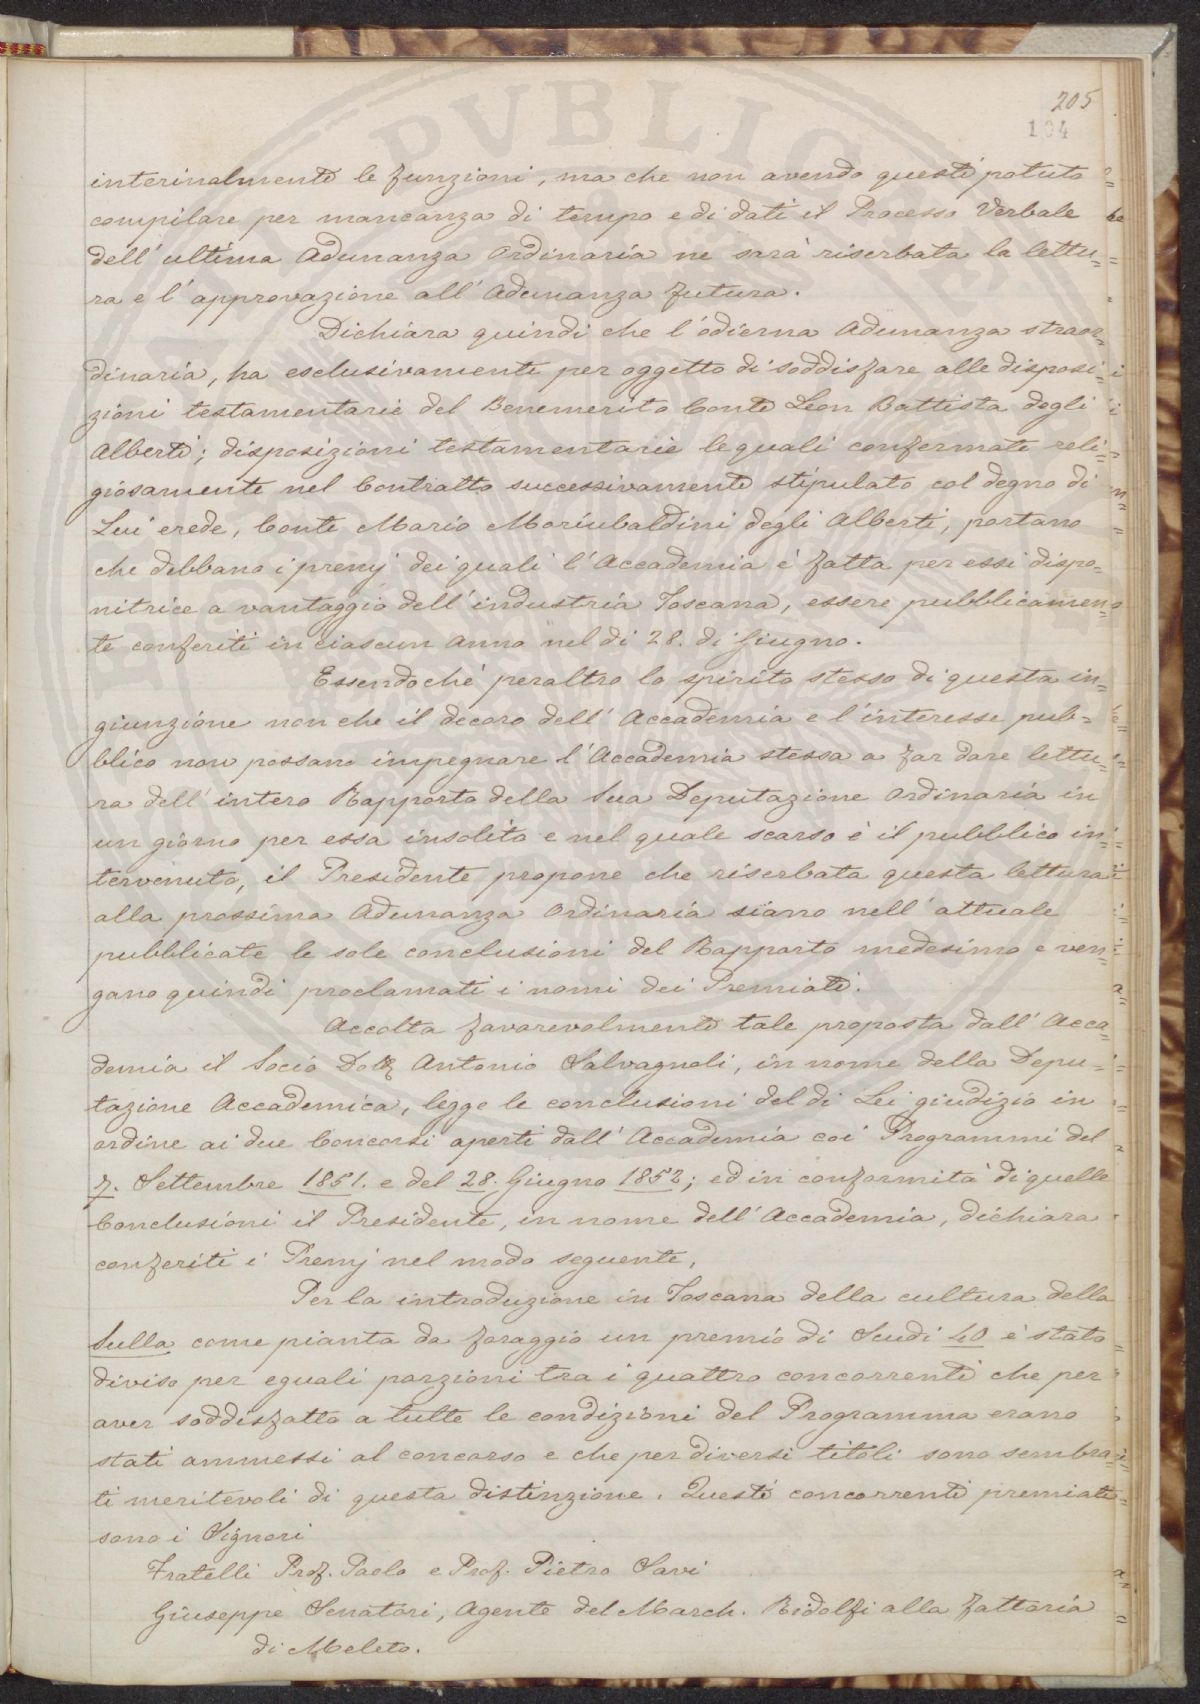 205
104
interinalmente le funzioni, ma che non avendo questi potuto
compilare per mancanza di tempo e di dati il Processo Verbale
dell' ultima Adunanza Ordinaria ne sarà riserbata la lettu=
ra e l' approvazione all' Adunanza futura.
Dichiara quindi che l' odierna Adunanza straor=
dinaria, ha esclusivamente per oggetto di soddisfare alle disposi=
zioni testamentarie del Benemerito Conte Leon Battista degli
Alberti; disposizioni testamentarie le quali confermate reli=
giosamente nel Contratto successivamente stipulato col degno di
Lui erede, Conte Mario Moriubaldini degli Alberti, portano
che debbano i premj dei quali l' Accademia è fatta per essi dispo=
nitrice a vantaggio dell' industria Toscana, essere pubblicamen=
te conferiti in ciascun anno nel dì 28. di Giugno.
Essendochè peraltro lo spirito stesso di questa in=
giunzione non che il decoro dell' Accademia e l' interesse pub=
blico non possano impegnare l' Accademia stessa a far dare lettu=
ra dell' intero Rapporto della Sua Deputazione Ordinaria in
un giorno per essa insolito e nel quale scarso è il pubblico in=
tervenuto, il Presidente propone che riserbata questa lettura
alla prossima Adunanza Ordinaria siano nell' attuale
pubblicate le sole conclusioni del Rapporto medesimo e ven=
gano quindi proclamati i nomi dei Premiati.
Accolta favorevolmente tale proposta dall' Acca=
demia il Socio Dott. Antonio Salvagnoli, in nome della Depu=
tazione Accademica, legge le conclusioni del di Lei giudizio in
ordine ai due Concorsi aperti dall' Accademia coi Programmi del
7. Settembre 1851. e del 28. Giugno 1852; ed in conformità di quelle
Conclusioni il Presidente, in nome dell' Accademia, dichiara
conferiti i Premj nel modo seguente,
Per la introduzione in Toscana della cultura della
Sulla come pianta da foraggio un premio di Scudi 40 è stato
diviso per eguali porzioni tra i quattro concorrenti che per
aver soddisfatto a tutte le condizioni del Programma erano
stati ammessi al concorso e che per diversi titoli sono sembra=
ti meritevoli di questa distinzione. Questi concorrenti premiati
sono i Signori
Fratelli Prof. Paolo e Prof. Pietro Savi
Giuseppe Senatori, Agente del March. Ridolfi alla fattoria
di Meleto.